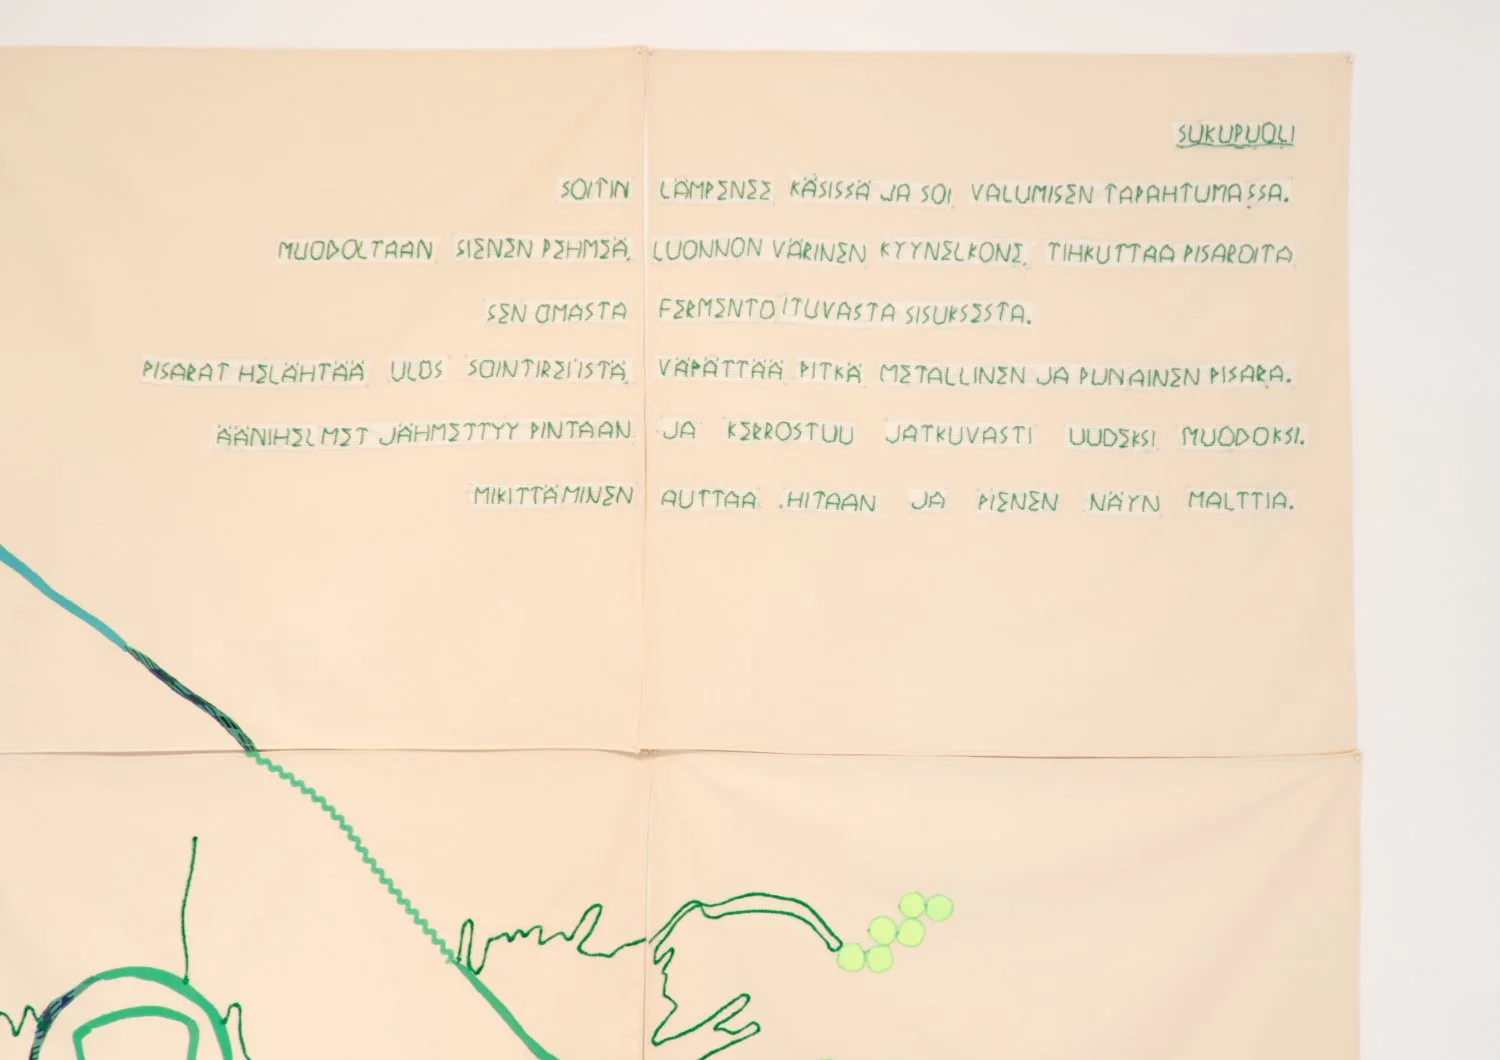 SUKUPUOLI
SOITIN LÄMPENEE KÄSISSÄ JA SOI VALUMISEN TAPAHTUMASSA.
MUODOLTAAN SIENEN PEHMEÄ, LUONNON VÄRINEN KYYNELKONE, TIHKUTTAA PISAROITA
SEN OMASTA FERMENTOITUVASTA SISUKSESTA.
PISARAT HELÄHTÄÄ ULOS SOINTIREIISTÄ, VÄPÄTTÄÄ PITKÄ METALLINEN JA PUNAINEN PISARA.
ÄÄNIHELMET JÄHMETTYY PINTAAN JA KERROSTUU JATKUVASTI UUDEKSI MUODOKSI.
MIKITTÄMINEN AUTTAA HITAAN JA PIENEN NÄYN MALTTIA.